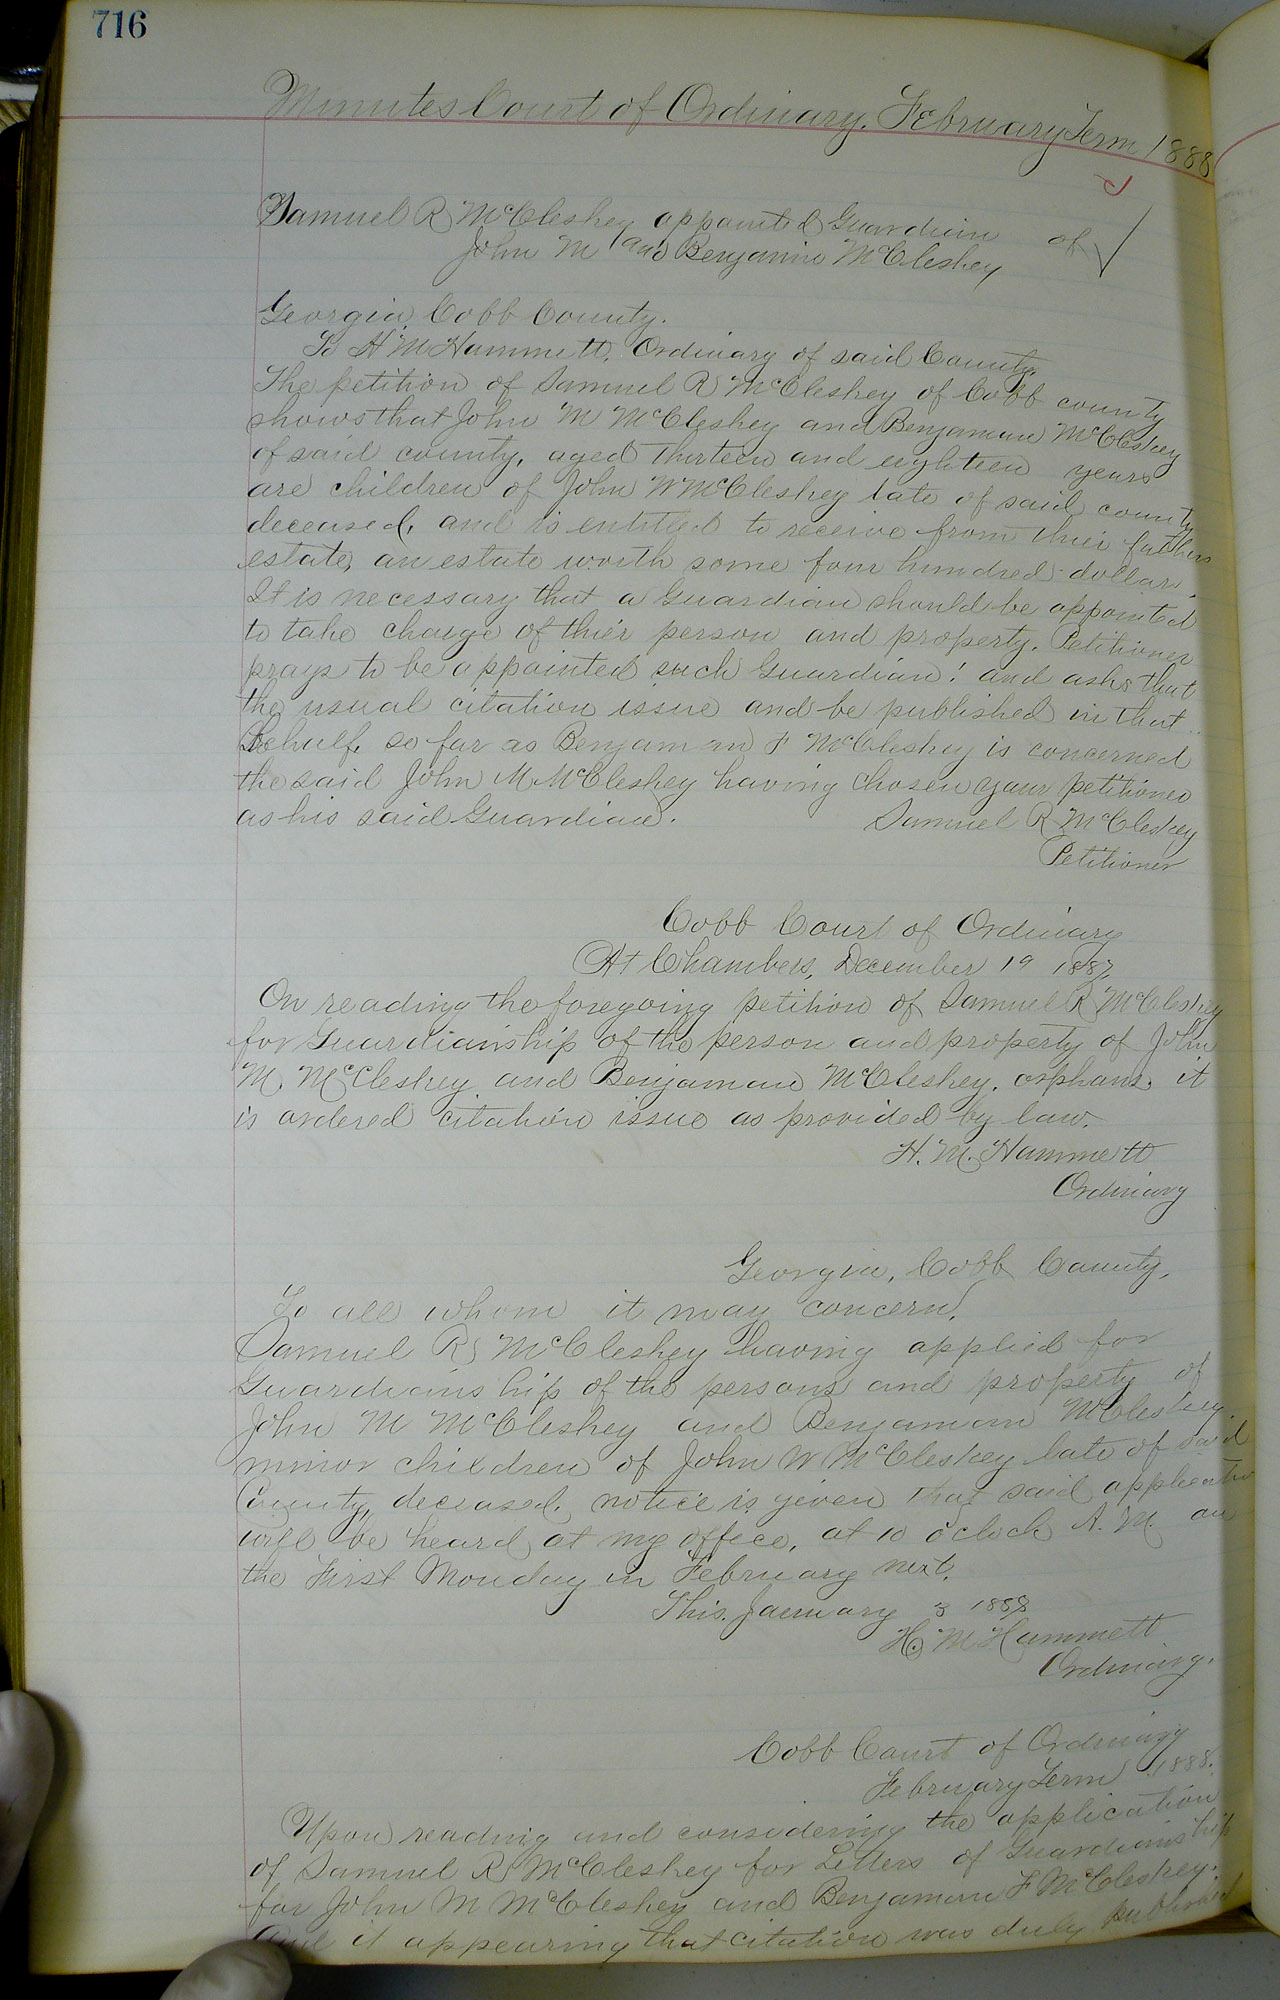 716
Minutes Court of Ordinary, February Term 1888
Samuel R McCleskey appointed Guardian of
John M and Benjamin McCleskey
Georgia, Cobb County.
To H M Hammett, Ordinary of said County,
The petition of Samuel R McCleskey of Cobb county
shows that John M McCleskey and Benjaman McCleskey
of said county, aged thirteen and eighteen years
are children of John W McCleskey late of said county
deceased, and is entitled to receive from thier fathers
estate, an estate worth some four hundred dollars.
It is necessary that a Guardian should be appointed
to take charge of thier person and property. Petitioner
prays to be appointed such Guardian; and asks that
the usual citation issue and be published in that
behalf, so far as Benjaman F McCleskey is concerned
the said John M McCleskey having chosen your petitioner
as his said Guardian.
Samuel R McCleskey
Petitioner
Cobb Court of Ordinary
At Chambers, December 19 1887,
On reading the foregoing petition of Samuel R McCleskey
for Guardianship of the person and property of John
M. McCleskey and Benjaman McCleskey, orphans, it
is ordered citation issue as provided by law.
H. M. Hammett
Ordinary
Georgia, Cobb County,
To all whom it may concern,
Samuel R McCleskey having applied for
Guardianship of the persons and property of
John M McCleskey and Benjaman McCleskey
minor children of John W McCleskey late of said
County, deceased, notice is given that said application
will be heard at my office, at 10 o'clock A. M. on
the First Monday in February next.
This January 3 1888
H. M Hammett
Ordinary.
Cobb Court of Ordinary
February Term 1888.
Upon reading and considering the application
of Samuel R McCleskey for Letters of Guardianship
for John M McCleskey and Benjaman F McCleskey.
And it appearing that citation was duly published